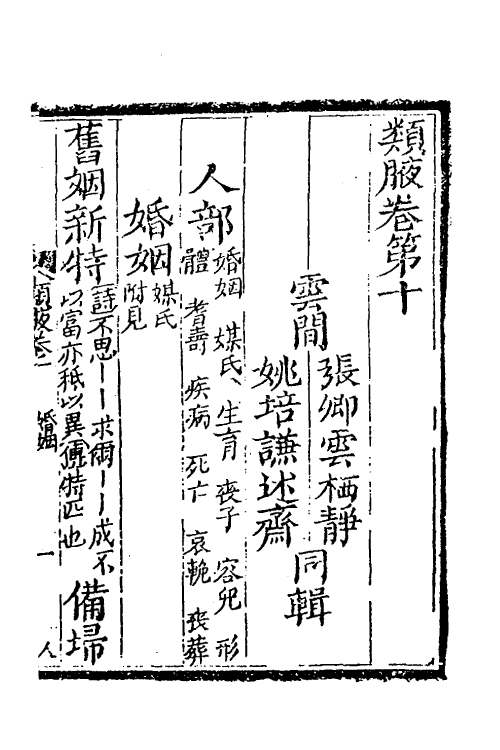 類腋卷第十
張卿雲栖靜
雲間
同輯
姚培謙述齋
人部
婚姻 媒氏 生育 喪子 容皃 形
體 耆壽 疾病 死亡 哀輓 喪葬
婚姻
媒氏
附見
舊姻新特
詩不思丨丨求爾丨丨成不
以富亦秪以異
特匹也
備埽
類腋卷
婚姻
一
人